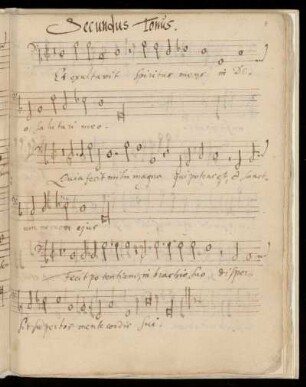 Secundus Tonus.
Et exultavit spiritus meus in De-
o salutari meo.
Quia fecit mihi magna qui potens est, et sanct-
um nomen ejus
Fecit potentiam, in brachio suo, disper-
sit superbos mente cordis sui.